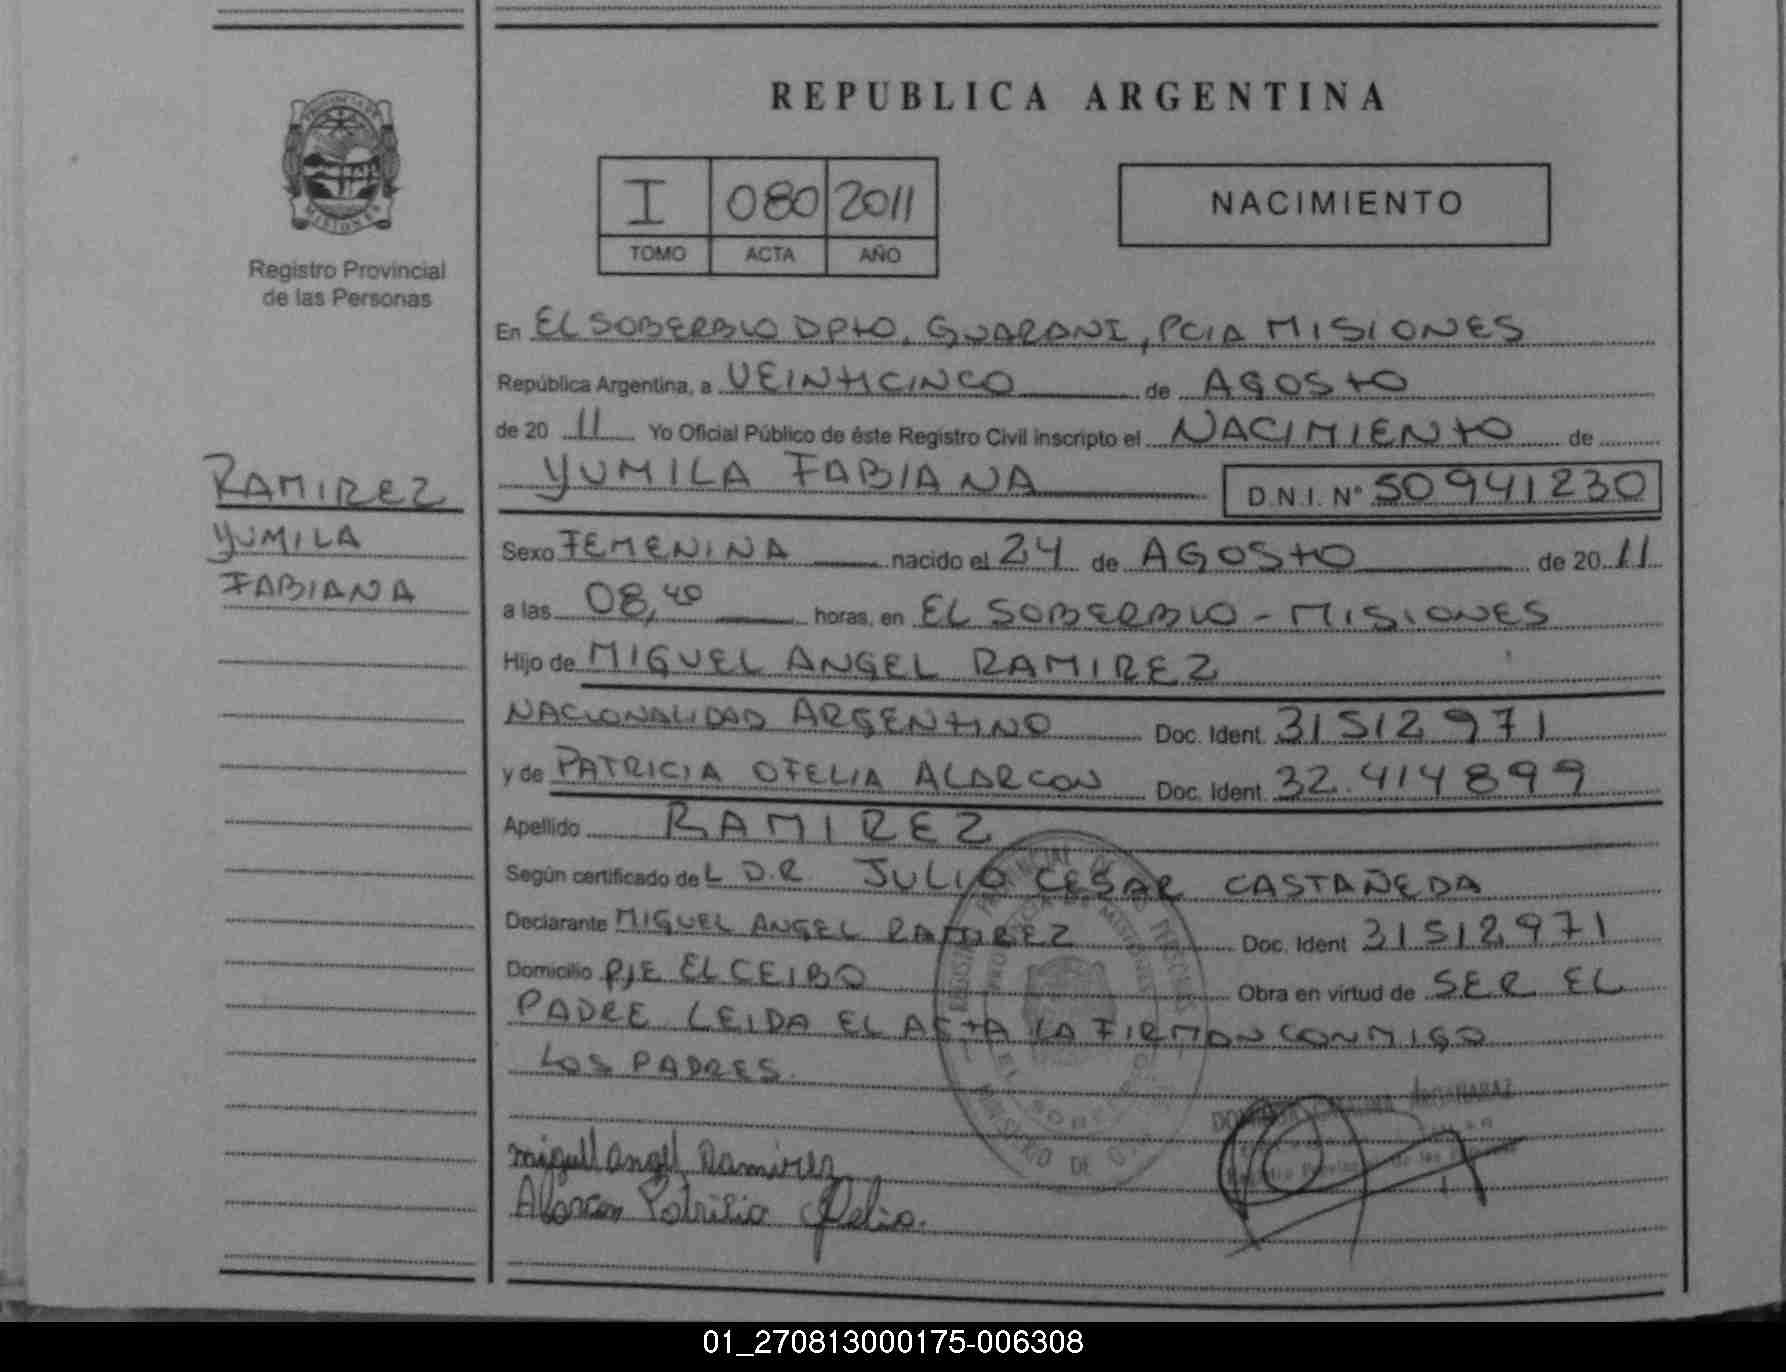 REPUBLICA ARGENTINA
PROVINCIA DE
MISIONES
Registro Provincial
de las Personas
I 080 2011
TOMO ACTA AÑO
NACIMIENTO
En EL SOBERBIO DPtO, GUARANI, PCIA MISIONES
República Argentina, a VEINtICINCO de AGOStO
de 20 11 Yo Oficial Público de éste Registro Civil inscripto el NACIMIENtO de
YUMILA FABIANA D.N.I. N° 50941230
RAMIREZ
YUMILA
FABIANA
Sexo FEMENINA nacido el 24 de AGOStO de 20 11
a las 08,40 horas, en EL SOBERBIO - MISIONES
Hijo de MIGUEL ANGEL RAMIREZ
NACIONALIDAD ARGENtINO Doc. Ident. 31512971
y de PATRICIA OFELIA ALARCON Doc. Ident. 32.414899
Apellido RAMIREZ
Según certificado de L D.R. JULIO CESAR CASTAÑEDA
Declarante MIGUEL ANGEL RAMIREZ Doc. Ident 31512971
Domicilio PJE EL CEIBO Obra en virtud de SER EL
PADRE LEIDA EL ACtA LA FIRMAN CONMIGO
LOS PADRES.
miguel angel Ramirez
Alarcon Patricia Ofelia.
01_270813000175-006308